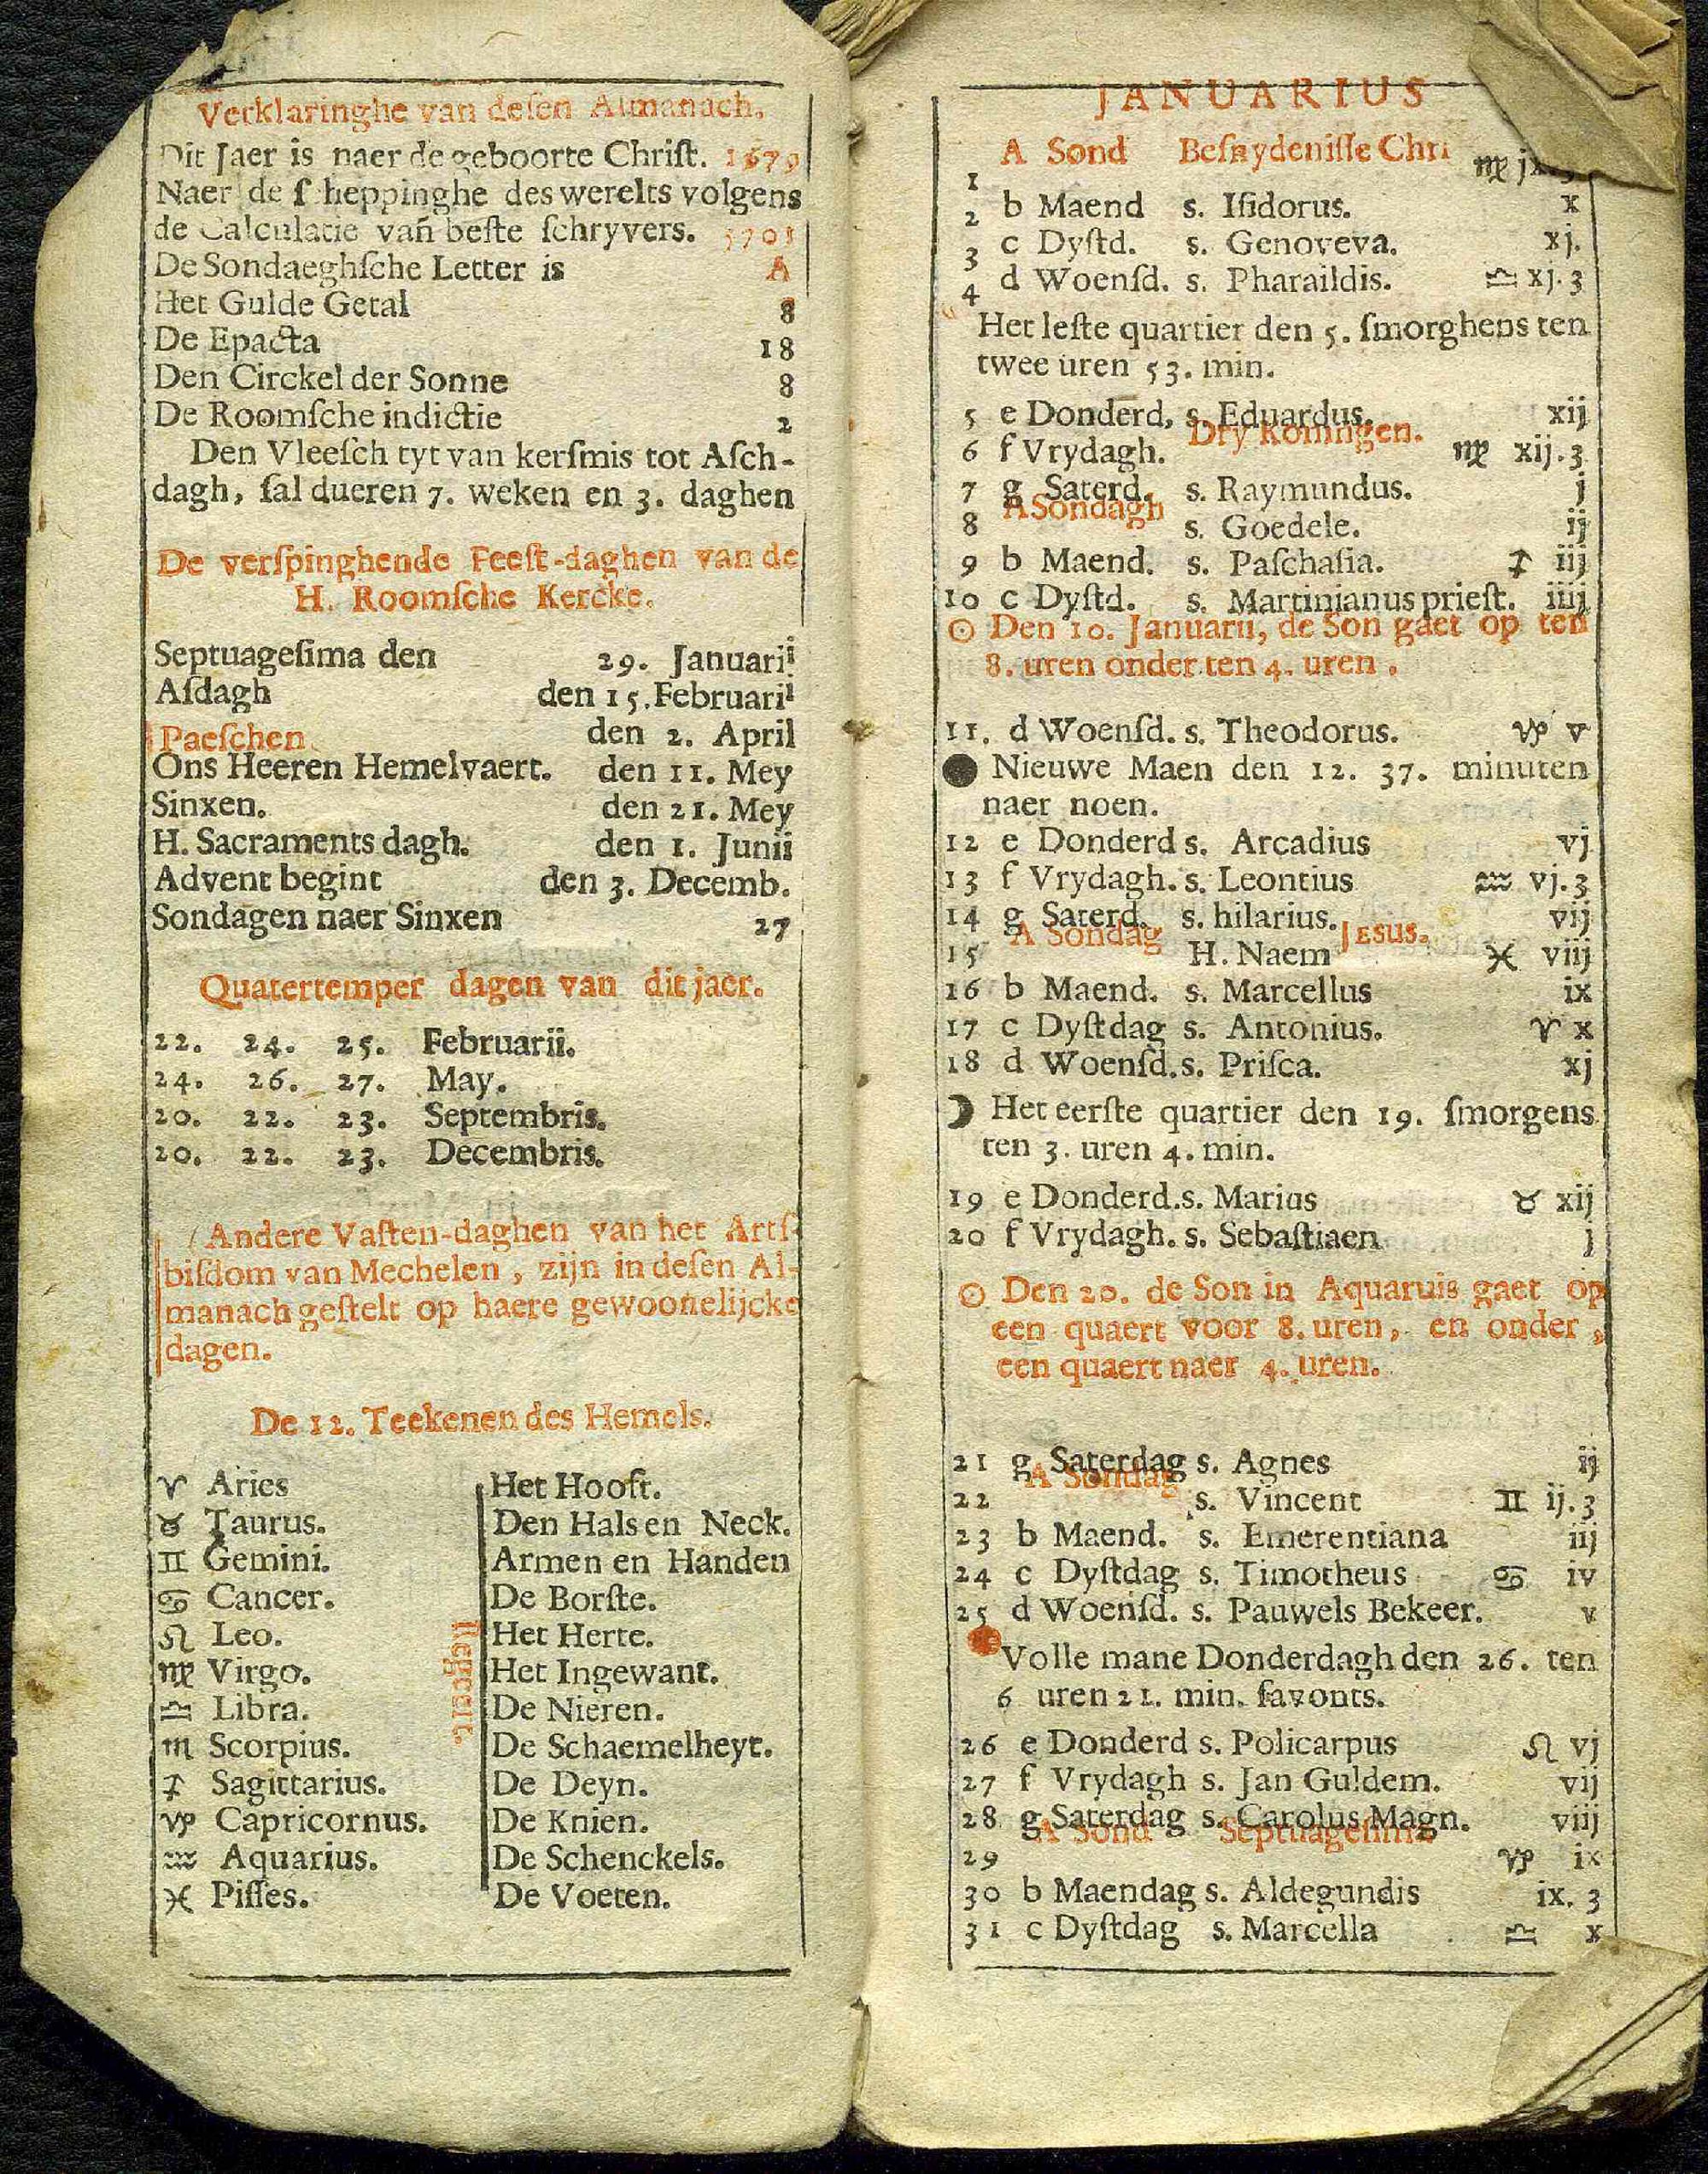 Verklaringhe van desen Almanach.
Dit Jaer is naer de geboorte Chriſt. 1679
Naer de ſcheppinghe des werelts volgens
de Calculatie vañ beſte ſchryvers.
De Sondaeghſche Letter is A
Het Gulde Getal 8
De Epacta 18
Den Circkel der Sonne 8
De Roomſche indictie 2
Den Vleeſch tyt van kerſmis tot Aſch-
dagh, ſal dueren 7. weken en 3. daghen
De verſpinghende Feeſt-daghen van de
H. Roomſche Kercke.
Septuageſima den 29. Januarii
Aſdagh den 15. Februarii
Paeſchen den 2. April
Ons Heeren Hemelvaert. den 11. Mey
Sinxen. den 21. Mey
H. Sacraments dagh. den 1. Junii
Advent begint den 3. Decemb.
Sondagen naer Sinxen 27
Quatertemper dagen van dit jaer.
22. 24. 25. Februarii.
24. 26. 27. May.
20. 22. 23. Septembris.
20. 22. 23. Decembris.
Andere Vaſten-daghen van het Artſ-
biſdom van Mechelen, zijn in deſen Al-
manach geſtelt op haere gewoonelijcke
dagen.
De 12. Teekenen des Hemels.
♈ Aries Het Hooft.
♉ Taurus. Den Hals en Neck.
♊ Gemini. Armen en Handen
♋ Cancer. De Borſte.
♌ Leo. Het Herte.
♍ Virgo. Het Ingewant.
♎ Libra. De Nieren.
♏ Scorpius. De Schaemelheyt.
♐ Sagittarius. De Deyn.
♑ Capricornus. De Knien.
♒ Aquarius. De Schenckels.
♓ Piſſes. De Voeten.
Regeert.
JANUARIUS
1 A Sond Beſnydeniſſe Chri ♍
2 b Maend s. Iſidorus. x
3 c Dyſtd. s. Genoveva. xj.
4 d Woenſd. s. Pharaildis. ♎ xj.3
Het leſte quartier den 5. ſmorghens ten
twee uren 53. min.
5 e Donderd, s. Eduardus, xij
6 f Vrydagh. Dry Koningen. ♍ xij.3
7 g Saterd. s. Raymundus. j
8 A Sondagh s. Goedele. ij
9 b Maend. s. Paſchaſia. ♐ iij
10 c Dyſtd. s. Martinianus prieſt. iiij
☉ Den 10. Januarii, de Son gaet op ten
8. uren onder ten 4. uren.
11. d Woenſd. s. Theodorus. ♑ v
● Nieuwe Maen den 12. 37. minuten
naer noen.
12 e Donderd s. Arcadius vj
13 f Vrydagh. s. Leontius ♒ vj.3
14 g Saterd. s. hilarius. vij
15 A Sondag H. Naem JESUS. ♓ viij
16 b Maend. s. Marcellus ix
17 c Dyſtdag s. Antonius. ♈ x
18 d Woenſd. s. Priſca. xj
☽ Het eerſte quartier den 19. ſmorgens
ten 3. uren 4. min.
19 e Donderd. s. Marius ♉ xij
20 f Vrydagh. s. Sebaſtiaen j
☉ Den 20. de Son in Aquaruis gaet op
een quaert voor 8. uren, en onder,
een quaert naer 4. uren.
21 g Saterdag s. Agnes ij
22 A Sondag s. Vincent ♊ ij.3
23 b Maend. s. Emerentiana iij
24 c Dyſtdag s. Timotheus ♋ iv
25 d Woenſd. s. Pauwels Bekeer. v
Volle mane Donderdagh den 26. ten
6 uren 21. min. ſavonts.
26 e Donderd s. Policarpus ♌ vj
27 f Vrydagh s. Jan Guldem. vij
28 g Saterdag s. Carolus Magn. viij
29 A Sond Septuageſima ♑ ix
30 b Maendag s. Aldegundis ix. 3
31 c Dyſtdag s. Marcella ♎ x